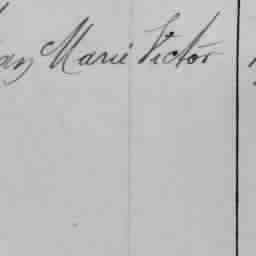 Marie Victor